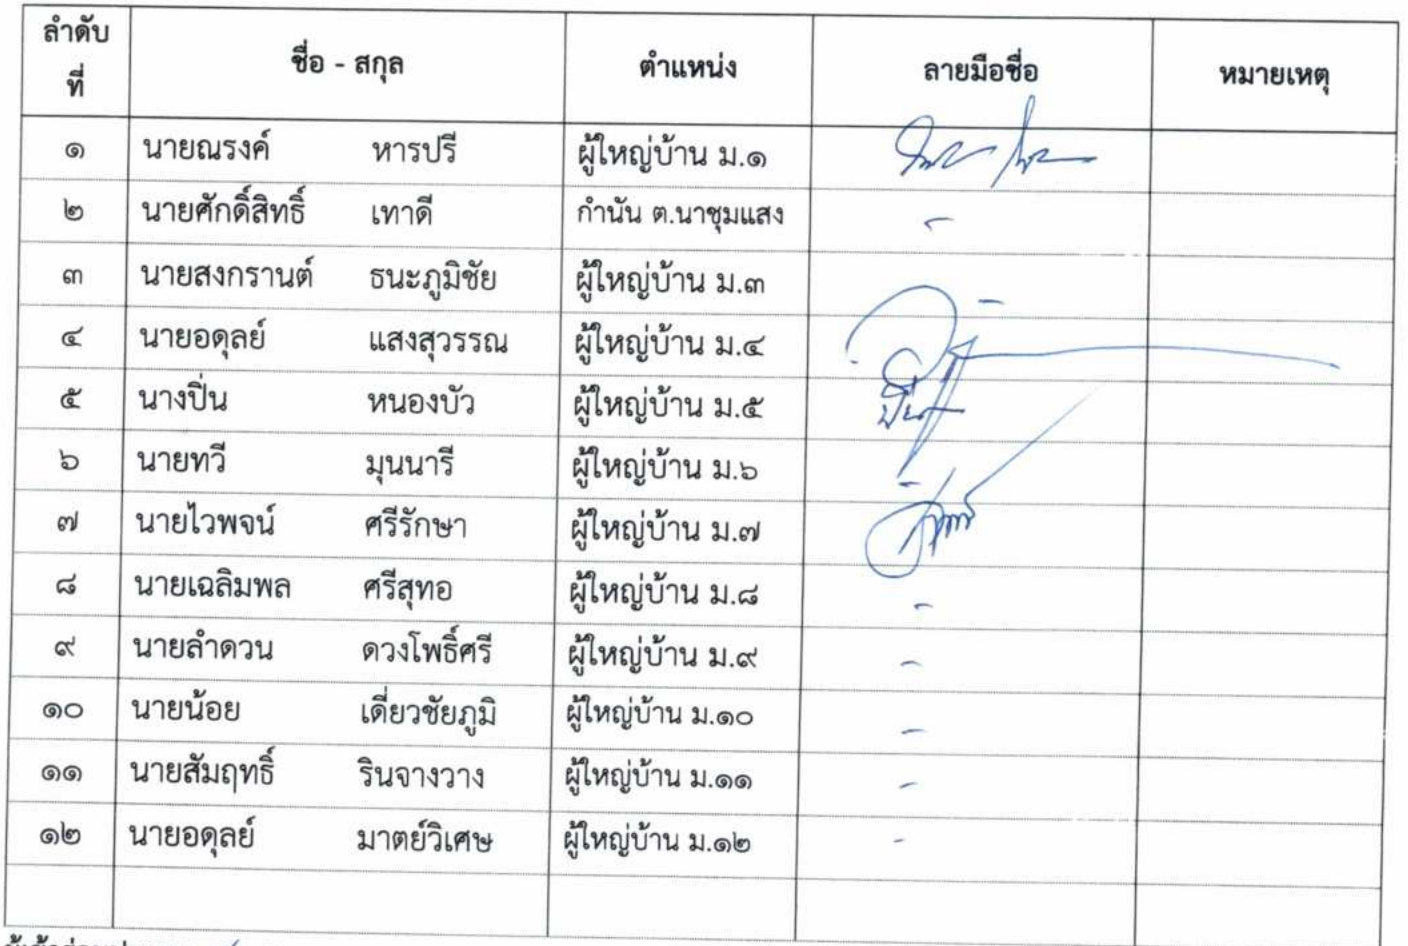 ลำดับที่ ชื่อ - สกุล ตำแหน่ง ลายมือชื่อ หมายเหตุ
๑ นายณรงค์ หารปรี ผู้ใหญ่บ้าน ม.๑
๒ นายศักดิ์สิทธิ์ เทาดี กำนัน ต.นาชุมแสง -
๓ นายสงกรานต์ ธนะภูมิชัย ผู้ใหญ่บ้าน ม.๓ -
๔ นายอดุลย์ แสงสุวรรณ ผู้ใหญ่บ้าน ม.๔
๕ นางปิ่น หนองบัว ผู้ใหญ่บ้าน ม.๕ ปิ่น
๖ นายทวี มุนนารี ผู้ใหญ่บ้าน ม.๖ -
๗ นายไวพจน์ ศรีรักษา ผู้ใหญ่บ้าน ม.๗
๘ นายเฉลิมพล ศรีสุทอ ผู้ใหญ่บ้าน ม.๘ -
๙ นายลำดวน ดวงโพธิ์ศรี ผู้ใหญ่บ้าน ม.๙ -
๑๐ นายน้อย เดี่ยวชัยภูมิ ผู้ใหญ่บ้าน ม.๑๐ -
๑๑ นายสัมฤทธิ์ รินจางวาง ผู้ใหญ่บ้าน ม.๑๑ -
๑๒ นายอดุลย์ มาตย์วิเศษ ผู้ใหญ่บ้าน ม.๑๒ -